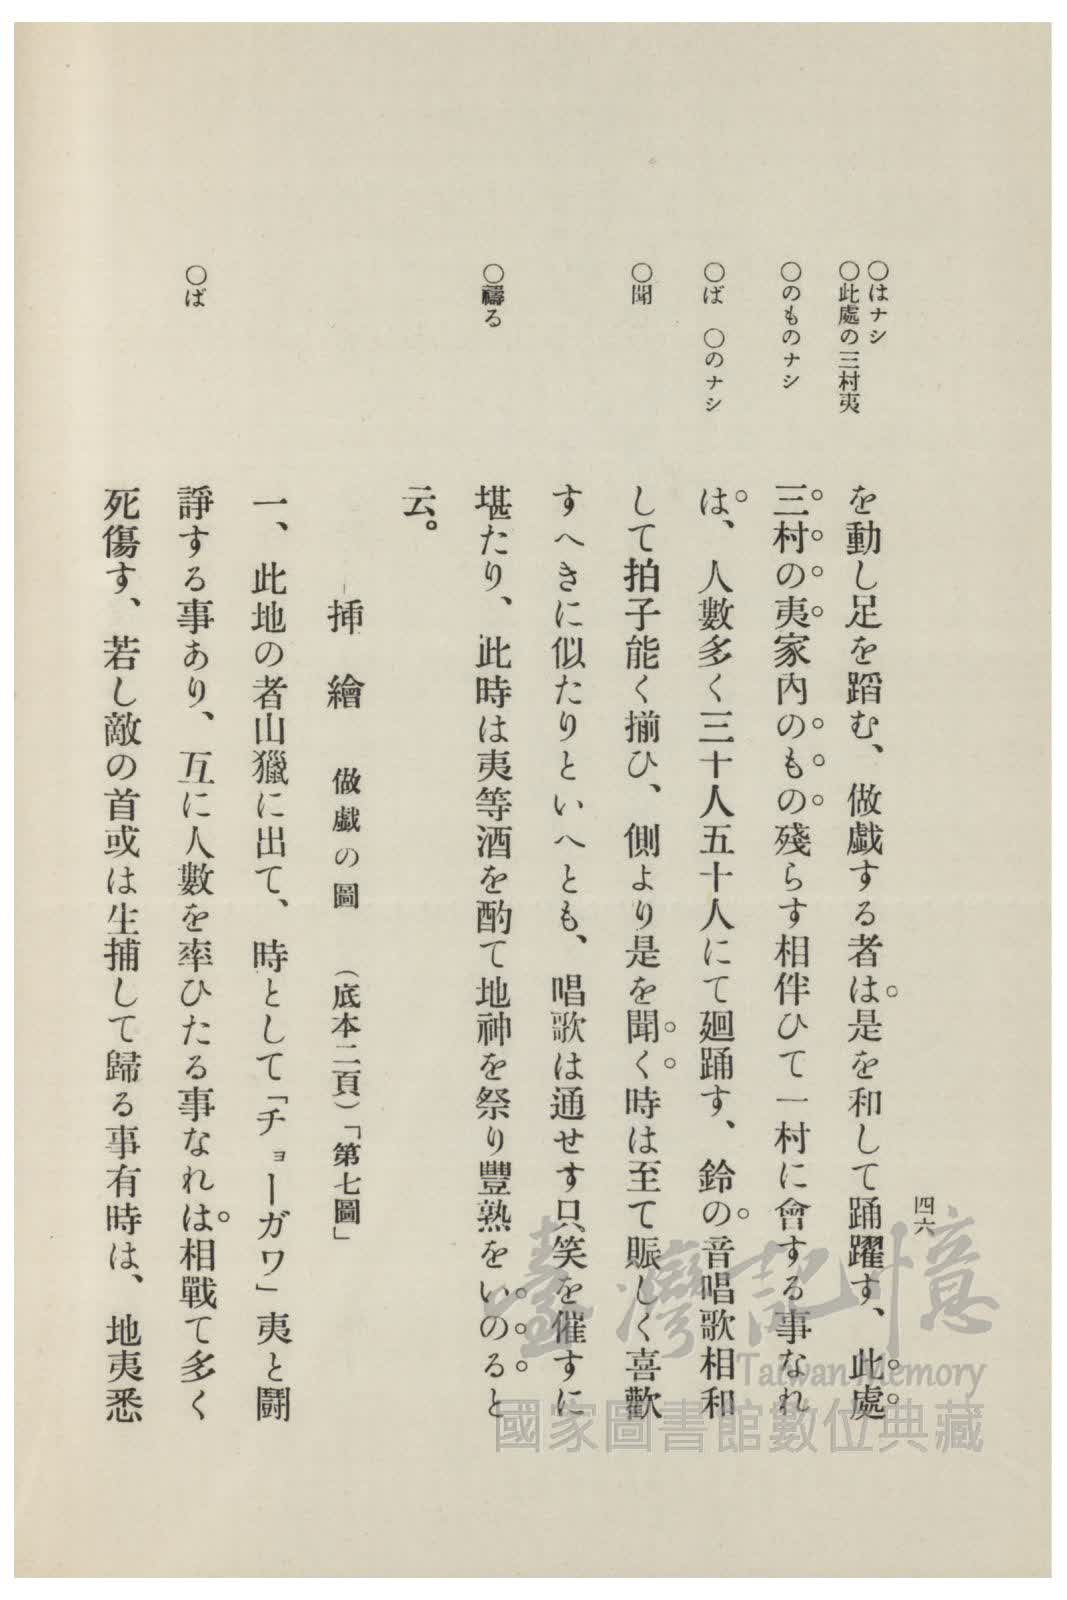 四六
○はナシ
○此處の三村夷
○のものナシ
○ば ○のナシ
○聞
○禱る
○ば
を動し足を蹈む、做戲する者は是を和して踊躍す、此處
三村の夷家內のもの殘らす相伴ひて一村に會する事なれ
は、人數多く三十人五十人にて廻踊す、鈴の音唱歌相和
して拍子能く揃ひ、側より是を聞く時は至て賑しく喜歡
すへきに似たりといへとも、唱歌は通せす只笑を催すに
堪たり、此時は夷等酒を酌て地神を祭り豐熟をいのると
云。
挿繪 做戲の圖 (底本二頁)「第七圖」
一、此地の者山獵に出て、時として「チョーガワ」夷と鬪
諍する事あり、互に人數を率ひたる事なれは相戰て多く
死傷す、若し敵の首或は生捕して歸る事有時は、地夷悉
臺灣記憶
Taiwan Memory
國家圖書館數位典藏